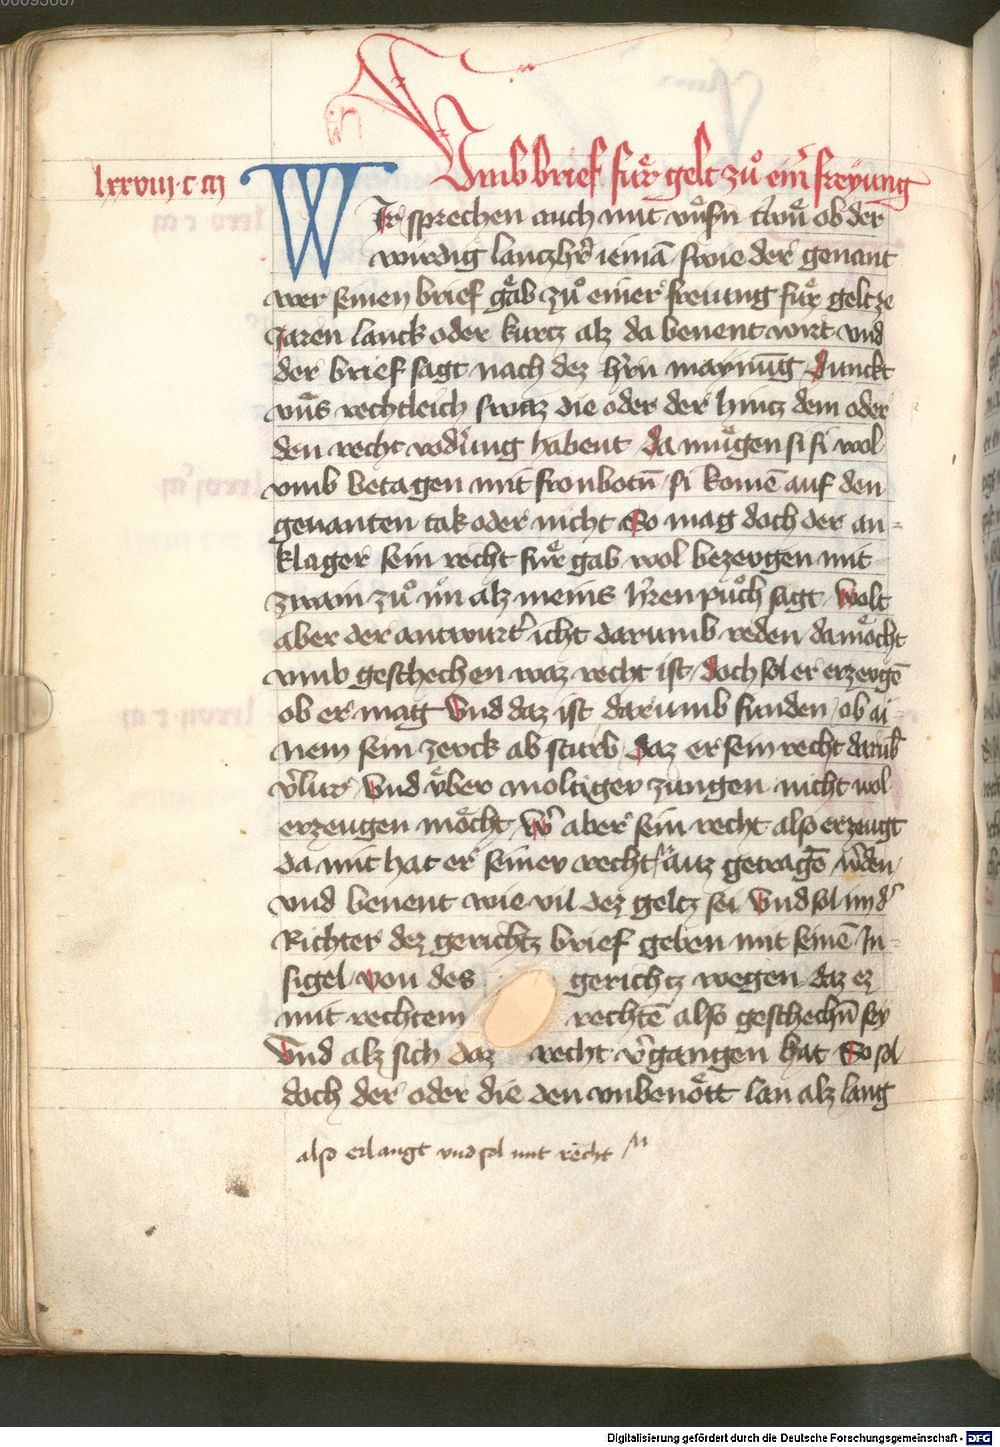 00093667
Vmb brief fuͤr gelt zuͦ eim̃ freyung
lxxviij · c iij
Wir sprechen auch mit vnsn̄ ob der
wirdig lantzhr̄ iemā swie der genant
wer seinen brief gaͤb zuͦ einer freiung fuͤr gelt ze
Jaren lanck oder kurtz alz da benent wirt vnd
der brief sagt nach dez hr̄n maynūg Dunckt
vns rechtleich swaz die oder der hintz dem oder
den recht vodrūng habent da muͤgen si si wol
vmb betagen mit fronbotn̄ si komē auf den
genanten tak oder nicht So mag doch der an-
klager sein recht fuͤr gab wol bezeugen mit
zwain zuͦ im alz meins hr̄ren puͦch sagt Wolt
aber der antwurt̄ icht darumb reden da moͤcht
vmb geschechen waz recht ist doch sol er erzeugē
ob er mag Vnd daz ist darumb funden ob ai-
nem sein zeuck ab sturb daz er sein recht darūb
v̄lur Vnd vͤber moltiger zungen nicht wol
erzeugen moͤcht W̄ aber sein recht also erzeugt
da mit hat er seinev recht gantz getragē w̄den
vnd benent wie vil dez geltz sei Vnd sol im d̄
Richter dez gerichtz brief geben mit seinē In-
sigel von des gerichtz wegen daz ez
mit rechtem rechtē also geschechn̄ sey
Vnd alz sich daz recht v̄gangen hat So sol
doch der oder die den vnbenoͤtt lan alz lang
also erlangt vnd sol mit recht
Digitalisierung gefördert durch die Deutsche Forschungsgemeinschaft - DFG